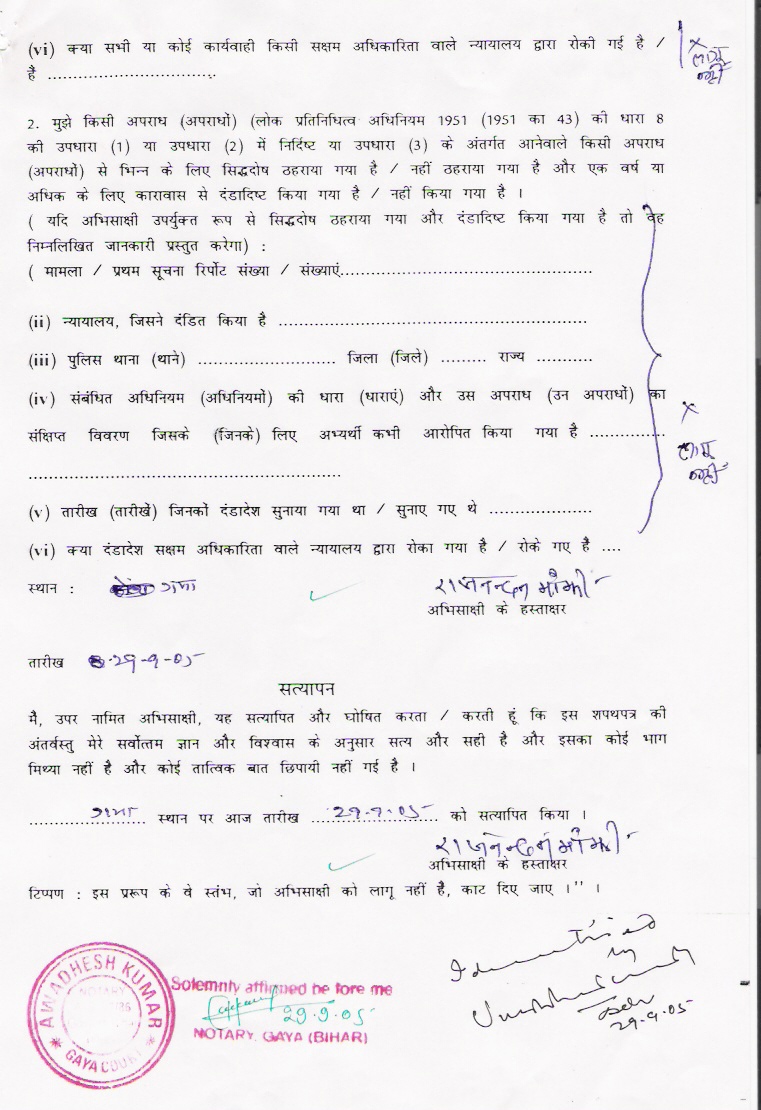 (vi) क्या सभी या कोई कार्यवाही किसी सक्षम अधिकारिता वाले न्यायालय द्वारा रोकी गई है /
है ..................................
× लागू
नहीं
2. मुझे किसी अपराध (अपराधों) (लोक प्रतिनिधित्व अधिनियम 1951 (1951 का 43) की धारा 8
की उपधारा (1) या उपधारा (2) में निर्दिष्ट या उपधारा (3) के अंतर्गत आनेवाले किसी अपराध
(अपराधों) से भिन्न के लिए सिद्धदोष ठहराया गया है / नहीं ठहराया गया है और एक वर्ष या
अधिक के लिए कारावास से दंडादिष्ट किया गया है / नहीं किया गया है ।
( यदि अभिसाक्षी उपर्युक्त रूप से सिद्धदोष ठहराया गया और दंडादिष्ट किया गया है तो वह
निम्नलिखित जानकारी प्रस्तुत करेगा) :
( मामला / प्रथम सूचना रिर्पोट संख्या / संख्याएं...................................................
(ii) न्यायालय, जिसने दंडित किया है ...............................................................
(iii) पुलिस थाना (थाने) ............................ जिला (जिले) ......... राज्य ...........
(iv) संबंधित अधिनियम (अधिनियमों) की धारा (धाराएं) और उस अपराध (उन अपराधों) का
संक्षिप्त विवरण जिसके (जिनके) लिए अभ्यर्थी कभी आरोपित किया गया है ................
................................................................
× लागू
नहीं
(v) तारीख (तारीखें) जिनकों दंडादेश सुनाया गया था / सुनाए गए थे .....................
(vi) क्या दंडादेश सक्षम अधिकारिता वाले न्यायालय द्वारा रोका गया है / रोके गए है ....
स्थान : गया राजनन्दन माँझी
अभिसाक्षी के हस्ताक्षर
तारीख 29-9-05
सत्यापन
मै, उपर नामित अभिसाक्षी, यह सत्यापित और घोषित करता / करती हूं कि इस शपथपत्र की
अंतर्वस्तु मेरे सर्वोत्तम ज्ञान और विश्वास के अनुसार सत्य और सही है और इसका कोई भाग
मिथ्या नहीं है और कोई तात्विक बात छिपायी नहीं गई है ।
गया स्थान पर आज तारीख 29-9-05 को सत्यापित किया ।
राजनन्दन माँझी
अभिसाक्षी के हस्ताक्षर
टिप्पण : इस प्ररूप के वे स्तंभ, जो अभिसाक्षी को लागू नहीं है, काट दिए जाए ।'' ।
by
29-9-05
AWADHESH KUMAR
NOTARY
GAYA COURT
Solemnly affirmed be fore me
29.9.05
NOTARY, GAYA (BIHAR)